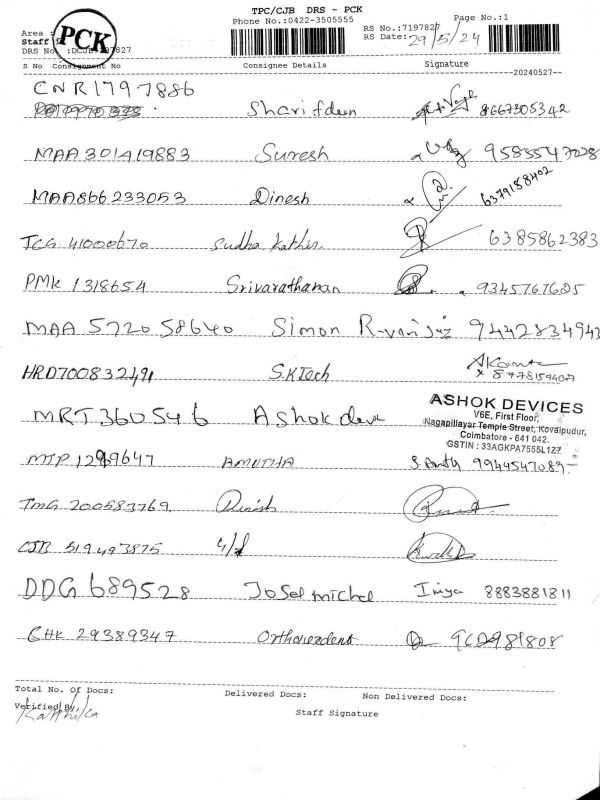 TPC/CJB DRS - PCK
Phone No.:0422-3505555 Page No.:1
Area : PCK RS No.:7197827
Staff RS Date: 29/5/24
DRS No. :DCJB7197827
S No Consignment No Consignee Details Signature
--20240527--
CNR1797886
Sharifdeen 8667305342
MAA 301419883 Suresh
MAA866233053 Dinesh 6379188402
TCG 41000670 Sudha Kathir 6385862383
PMK 1318654 Srivarathanan 9345767605
MAA 572058640 Simon 9442834943
HRD700832491 S.K Tech 8778159407
MRT.360546 Ashok devi
ASHOK DEVICES
V6E, First Floor,
Nagapillayar Temple Street, Kovaipudur,
Coimbatore - 641 042.
GSTIN : 33AGKPA7555L1Z7
MTP 1299647 AMUTHA 9944547089
TMG 200583769 Dinish
CJB 519493875
DDG 689528 Josel michel Iniya 8883881811
CHK 29389347
Total No. Of Docs: Delivered Docs: Non Delivered Docs:
Verified By, Staff Signature
Karthika